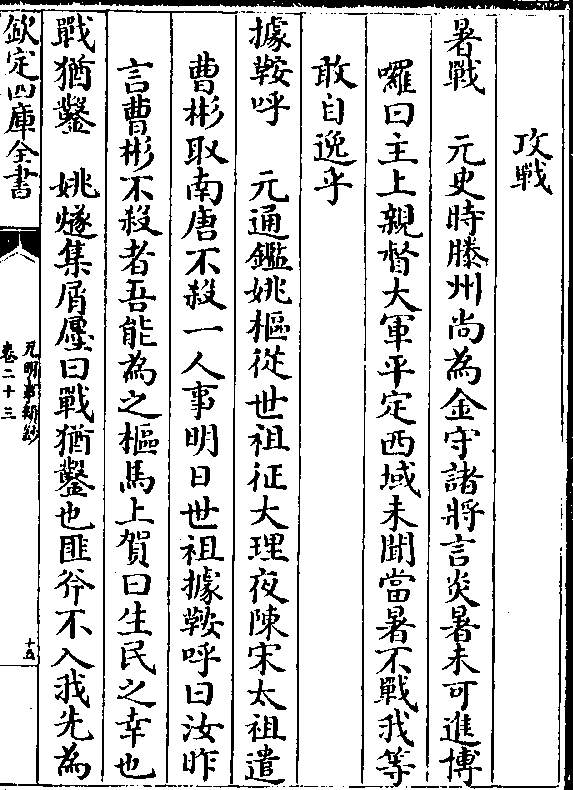 攻戰
暑戰　元史時滕州尚為金守諸將言炎暑未可進博
囉曰主上親督大軍平定西域未聞當暑不戰我等
敢自逸乎
據鞍呼　元通鑑姚樞從世祖征大理夜陳宋太祖遣
曹彬取南唐不殺一人事明日世祖據鞍呼曰汝昨
言曹彬不殺者吾能為之樞馬上賀曰生民之幸也
戰猶鑿　姚燧集屑㕓曰戰猶鑿也匪斧不入我先為
欽定四庫全書
元明事類鈔
卷二十三
十五